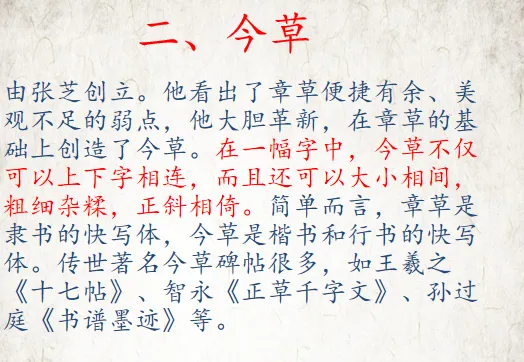 二、今草
由张芝创立。他看出了章草便捷有余、美
观不足的弱点，他大胆革新，在章草的基
础上创造了今草。在一幅字中，今草不仅
可以上下字相连，而且还可以大小相间，
粗细杂糅，正斜相倚。简单而言，章草是
隶书的快写体，今草是楷书和行书的快写
体。传世著名今草碑帖很多，如王羲之
《十七帖》、智永《正草千字文》、孙过
庭《书谱墨迹》等。